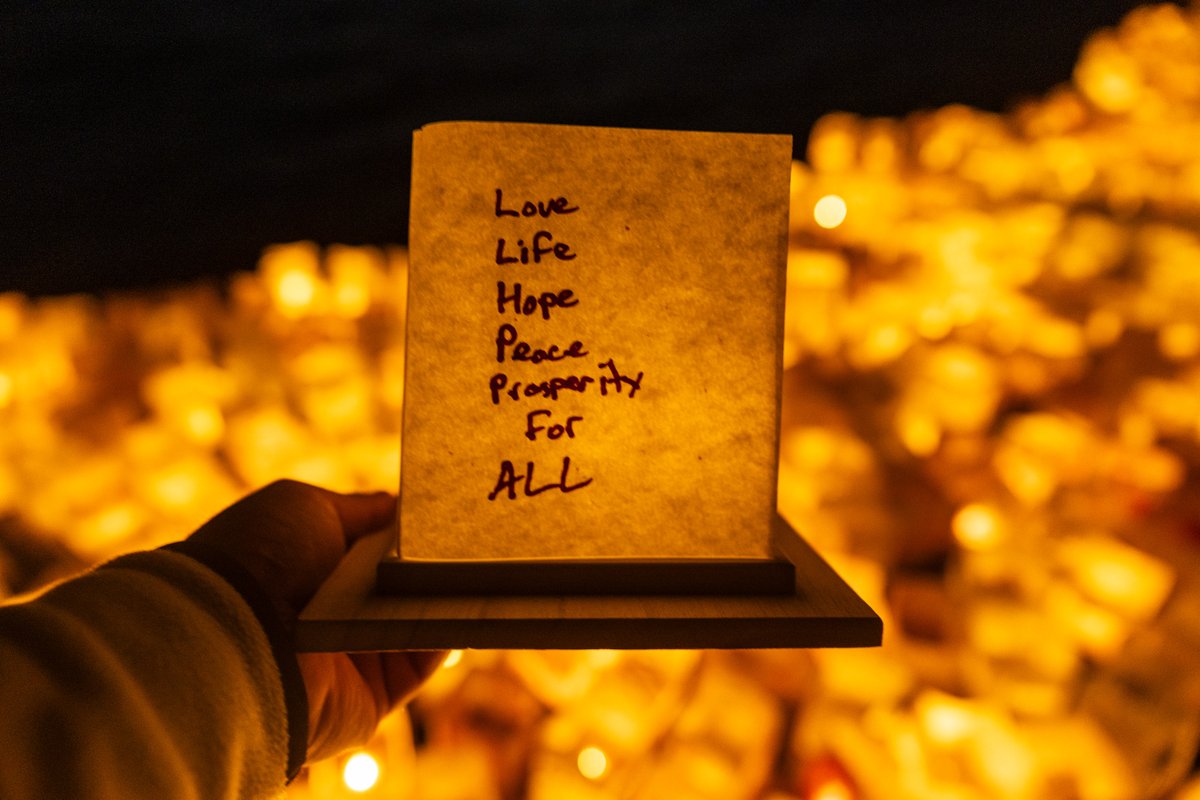 Love
Life
Hope
Peace
Prosperity
For
ALL